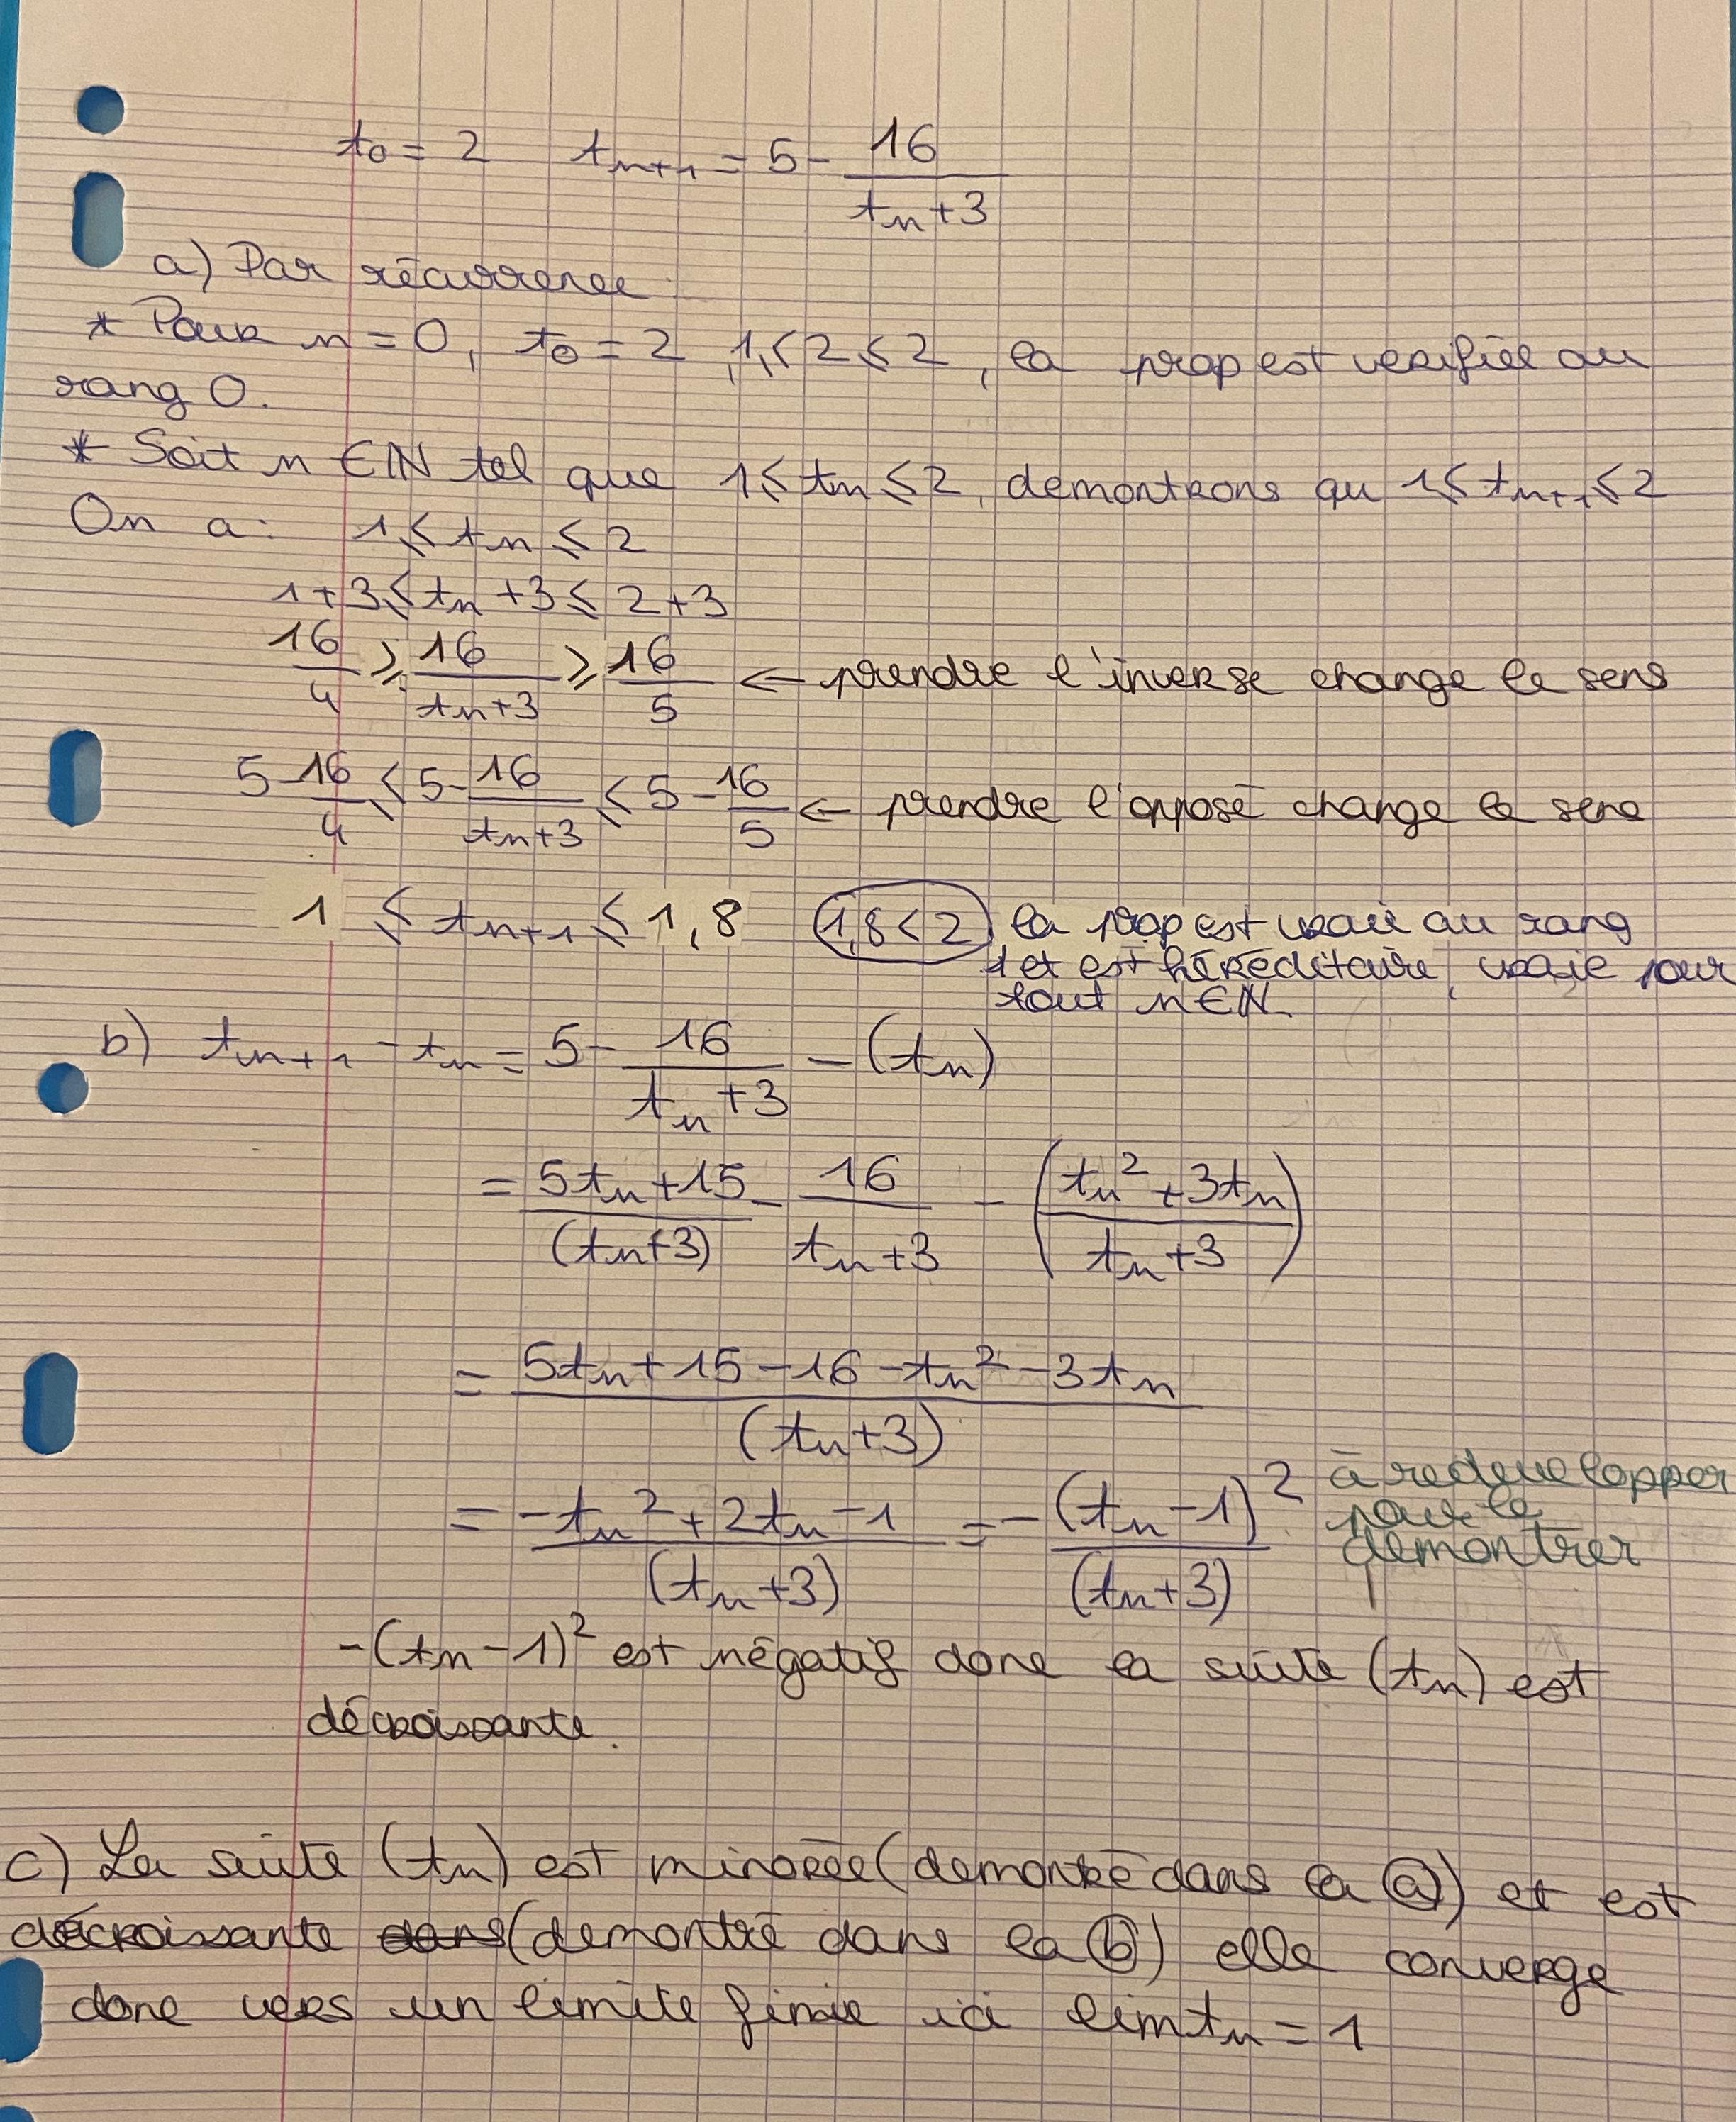 t₀ = 2    tₙ₊₁ = 5 - 16/(tₙ+3)
a) Par récurrence
* Pour n = 0, t₀ = 2, 1 ⩽ 2 ⩽ 2, la prop est verifiée au
rang 0.
* Soit n ∈ ℕ tel que 1 ⩽ tₙ ⩽ 2, démontrons qu 1 ⩽ tₙ₊₁ ⩽ 2
On a : 1 ⩽ tₙ ⩽ 2
1+3 ⩽ tₙ+3 ⩽ 2+3
16/4 ⩾ 16/(tₙ+3) ⩾ 16/5 ← prendre l'inverse change le sens
5 - 16/4 ⩽ 5 - 16/(tₙ+3) ⩽ 5 - 16/5 ← prendre l'opposé change le sens
1 ⩽ tₙ₊₁ ⩽ 1,8    1,8 < 2 la prop est vraie au rang
1 et est héréditaire, vraie pour
tout n ∈ ℕ.
b) tₙ₊₁ - tₙ = 5 - 16/(tₙ+3) - (tₙ)
= (5tₙ+15)/(tₙ+3) - 16/(tₙ+3) - ((tₙ²+3tₙ)/(tₙ+3))
= (5tₙ+15-16-tₙ²-3tₙ)/(tₙ+3)
= (-tₙ²+2tₙ-1)/(tₙ+3) = -(tₙ-1)²/(tₙ+3)
à redevelopper
pour le
démontrer
-(tₙ-1)² est négatif donc la suite (tₙ) est
décroissante.
c) La suite (tₙ) est minorée (demontré dans la ⓐ) et est
décroissante dans (demontré dans la ⓑ) elle converge
donc vers un limite finie ici lim tₙ = 1